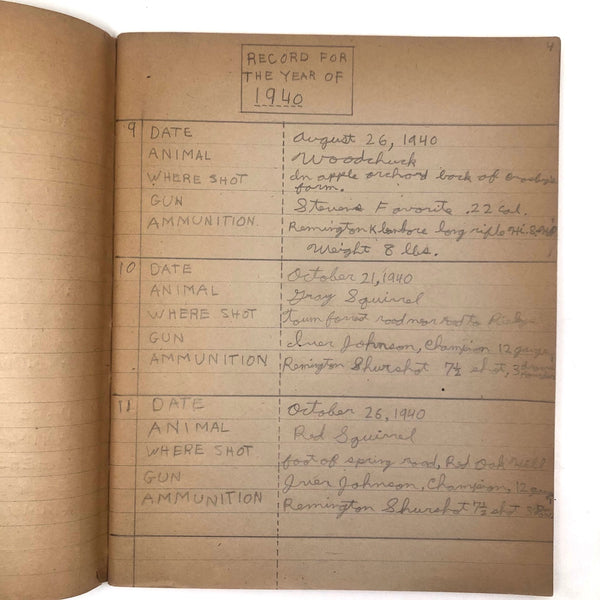 4
RECORD FOR
THE YEAR OF
1940
9 DATE August 26, 1940
ANIMAL Woodchuck
WHERE SHOT In apple orchard back of Crosby's
farm.
GUN Stevens Favorite .22 Cal.
AMMUNITION. Remington Kleanbore long rifle Hi-
Weight 8 lbs.
10 DATE October 21, 1940
ANIMAL Gray Squirrel
WHERE SHOT town forrest road near road to
GUN Iver Johnson, Champion 12 gauge,
AMMUNITION Remington Shurshot 7½ shot, 3
11 DATE October 26, 1940
ANIMAL Red Squirrel
WHERE SHOT foot of spring road, Red Oak Hill
GUN Iver Johnson, Champion, 12
AMMUNITION Remington Shurshot 7½ shot 3